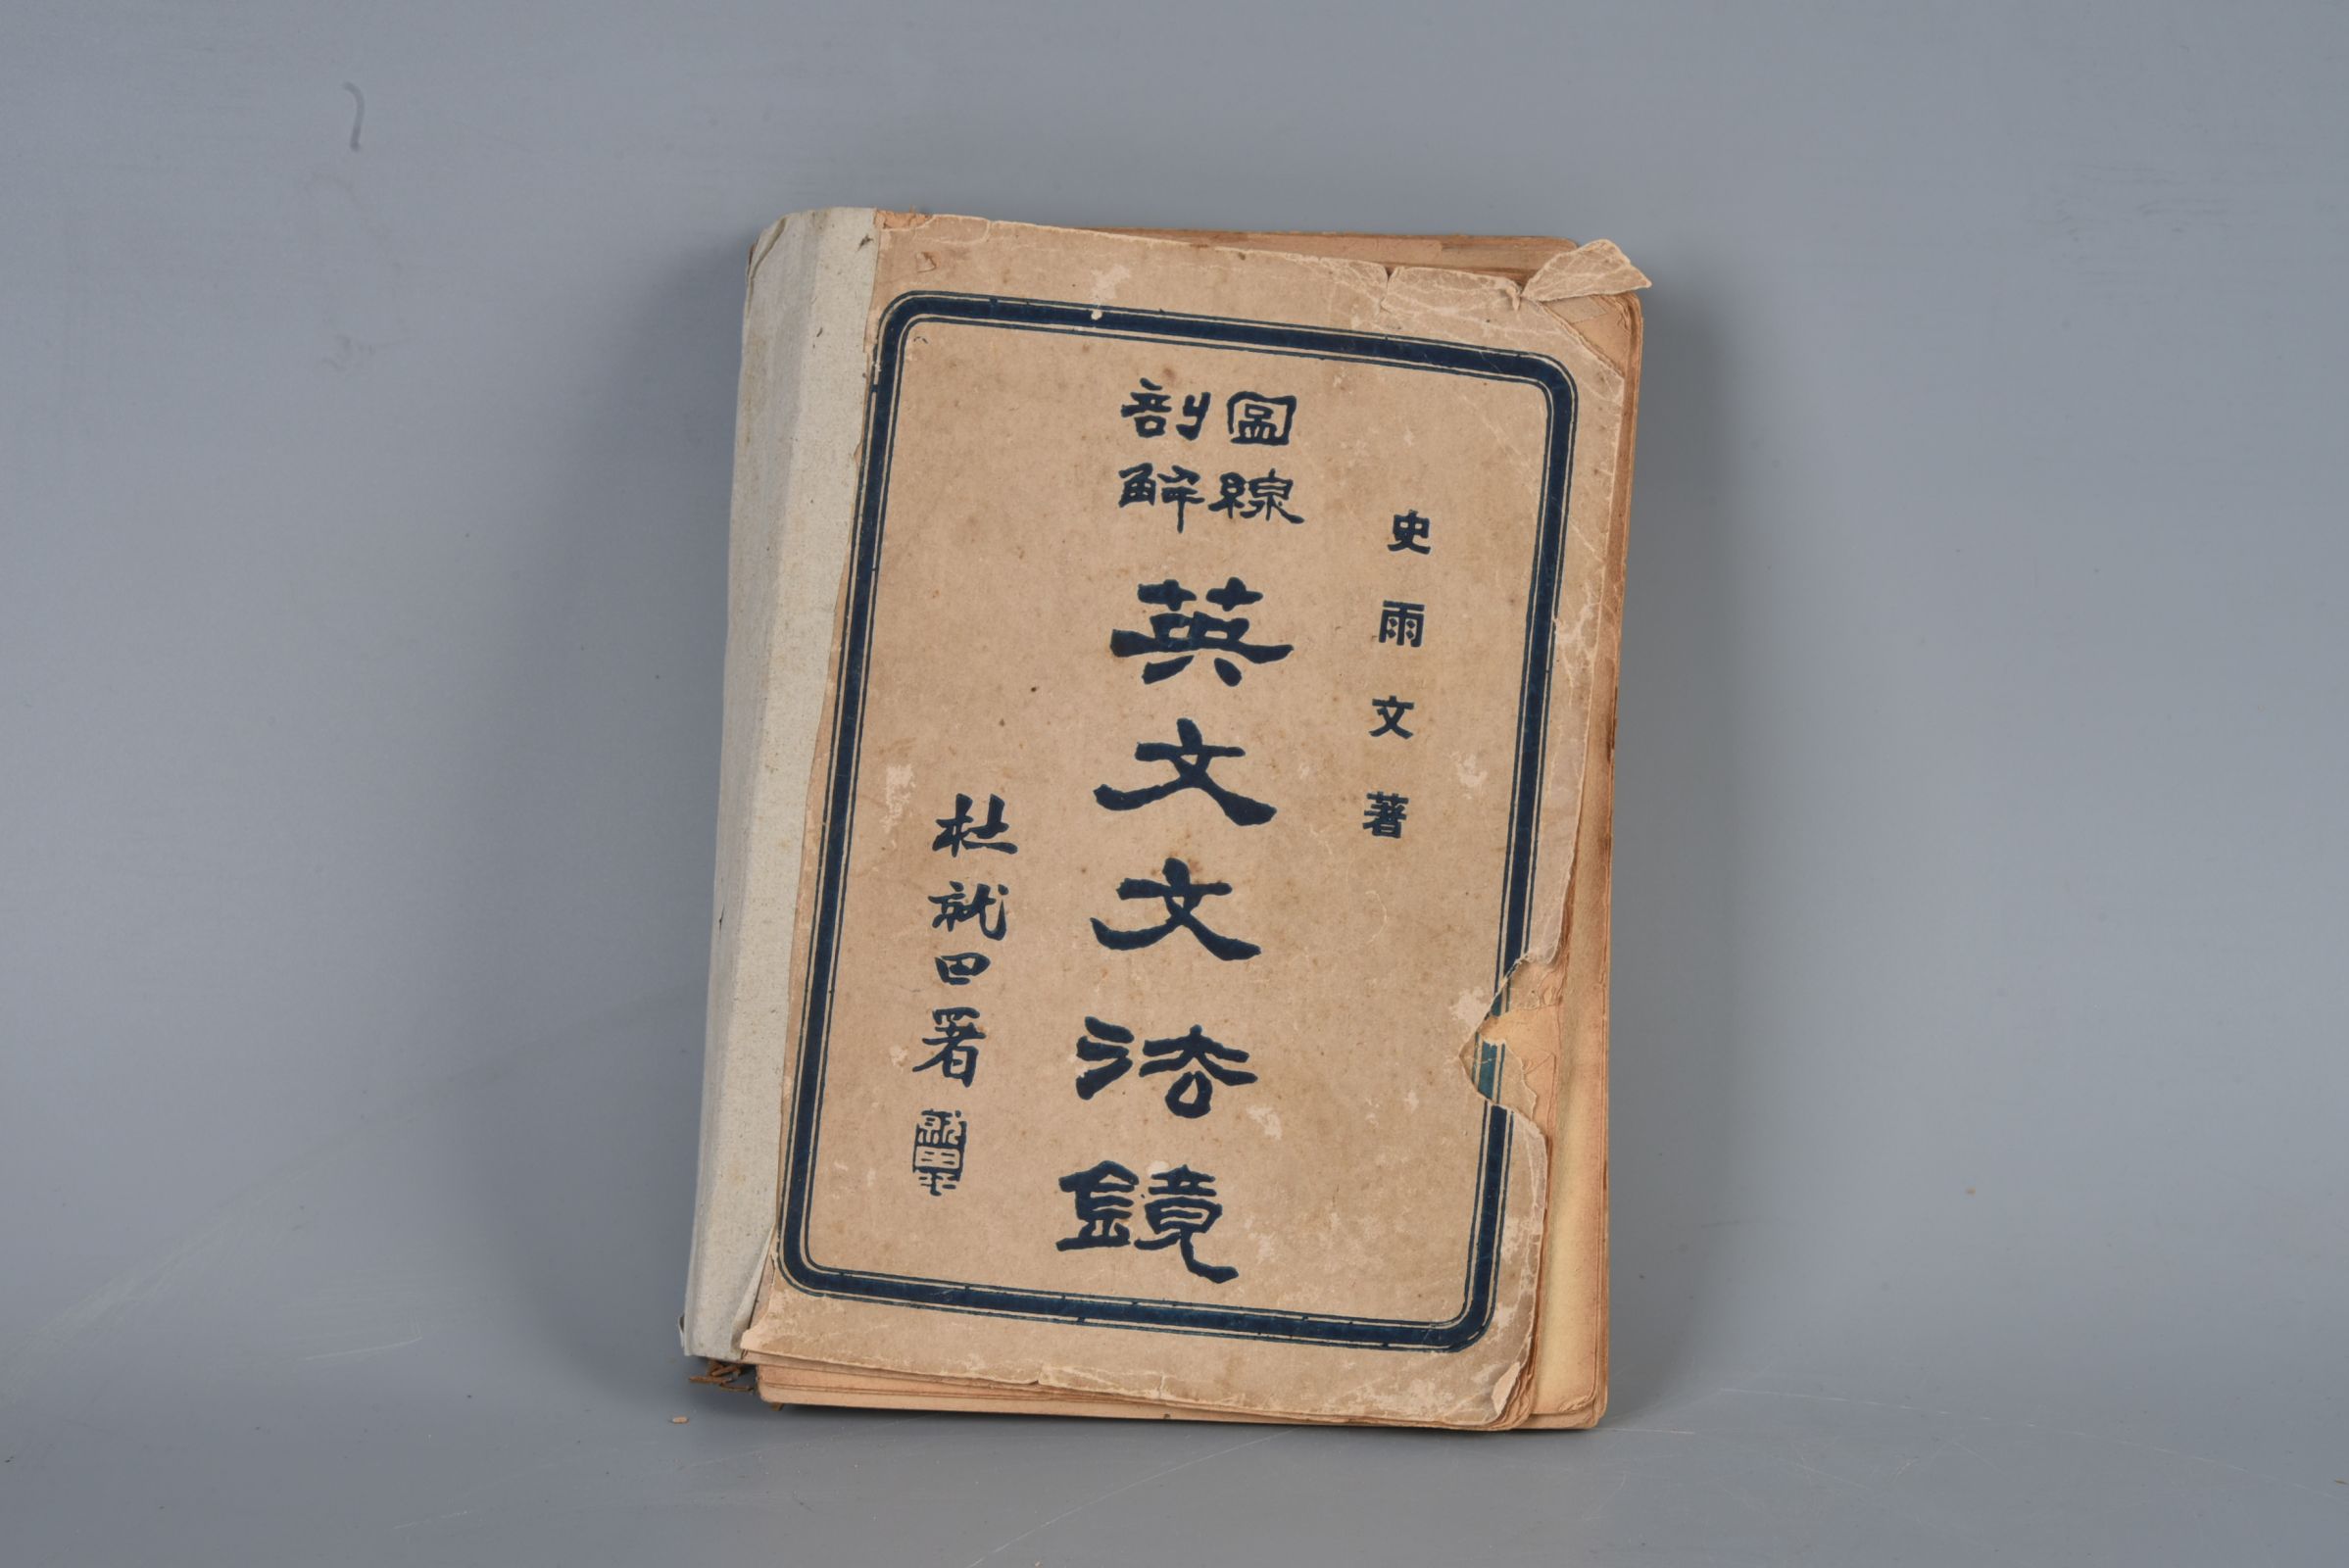 史雨文著
圖線
剖解
英文文法鏡
杜就田署